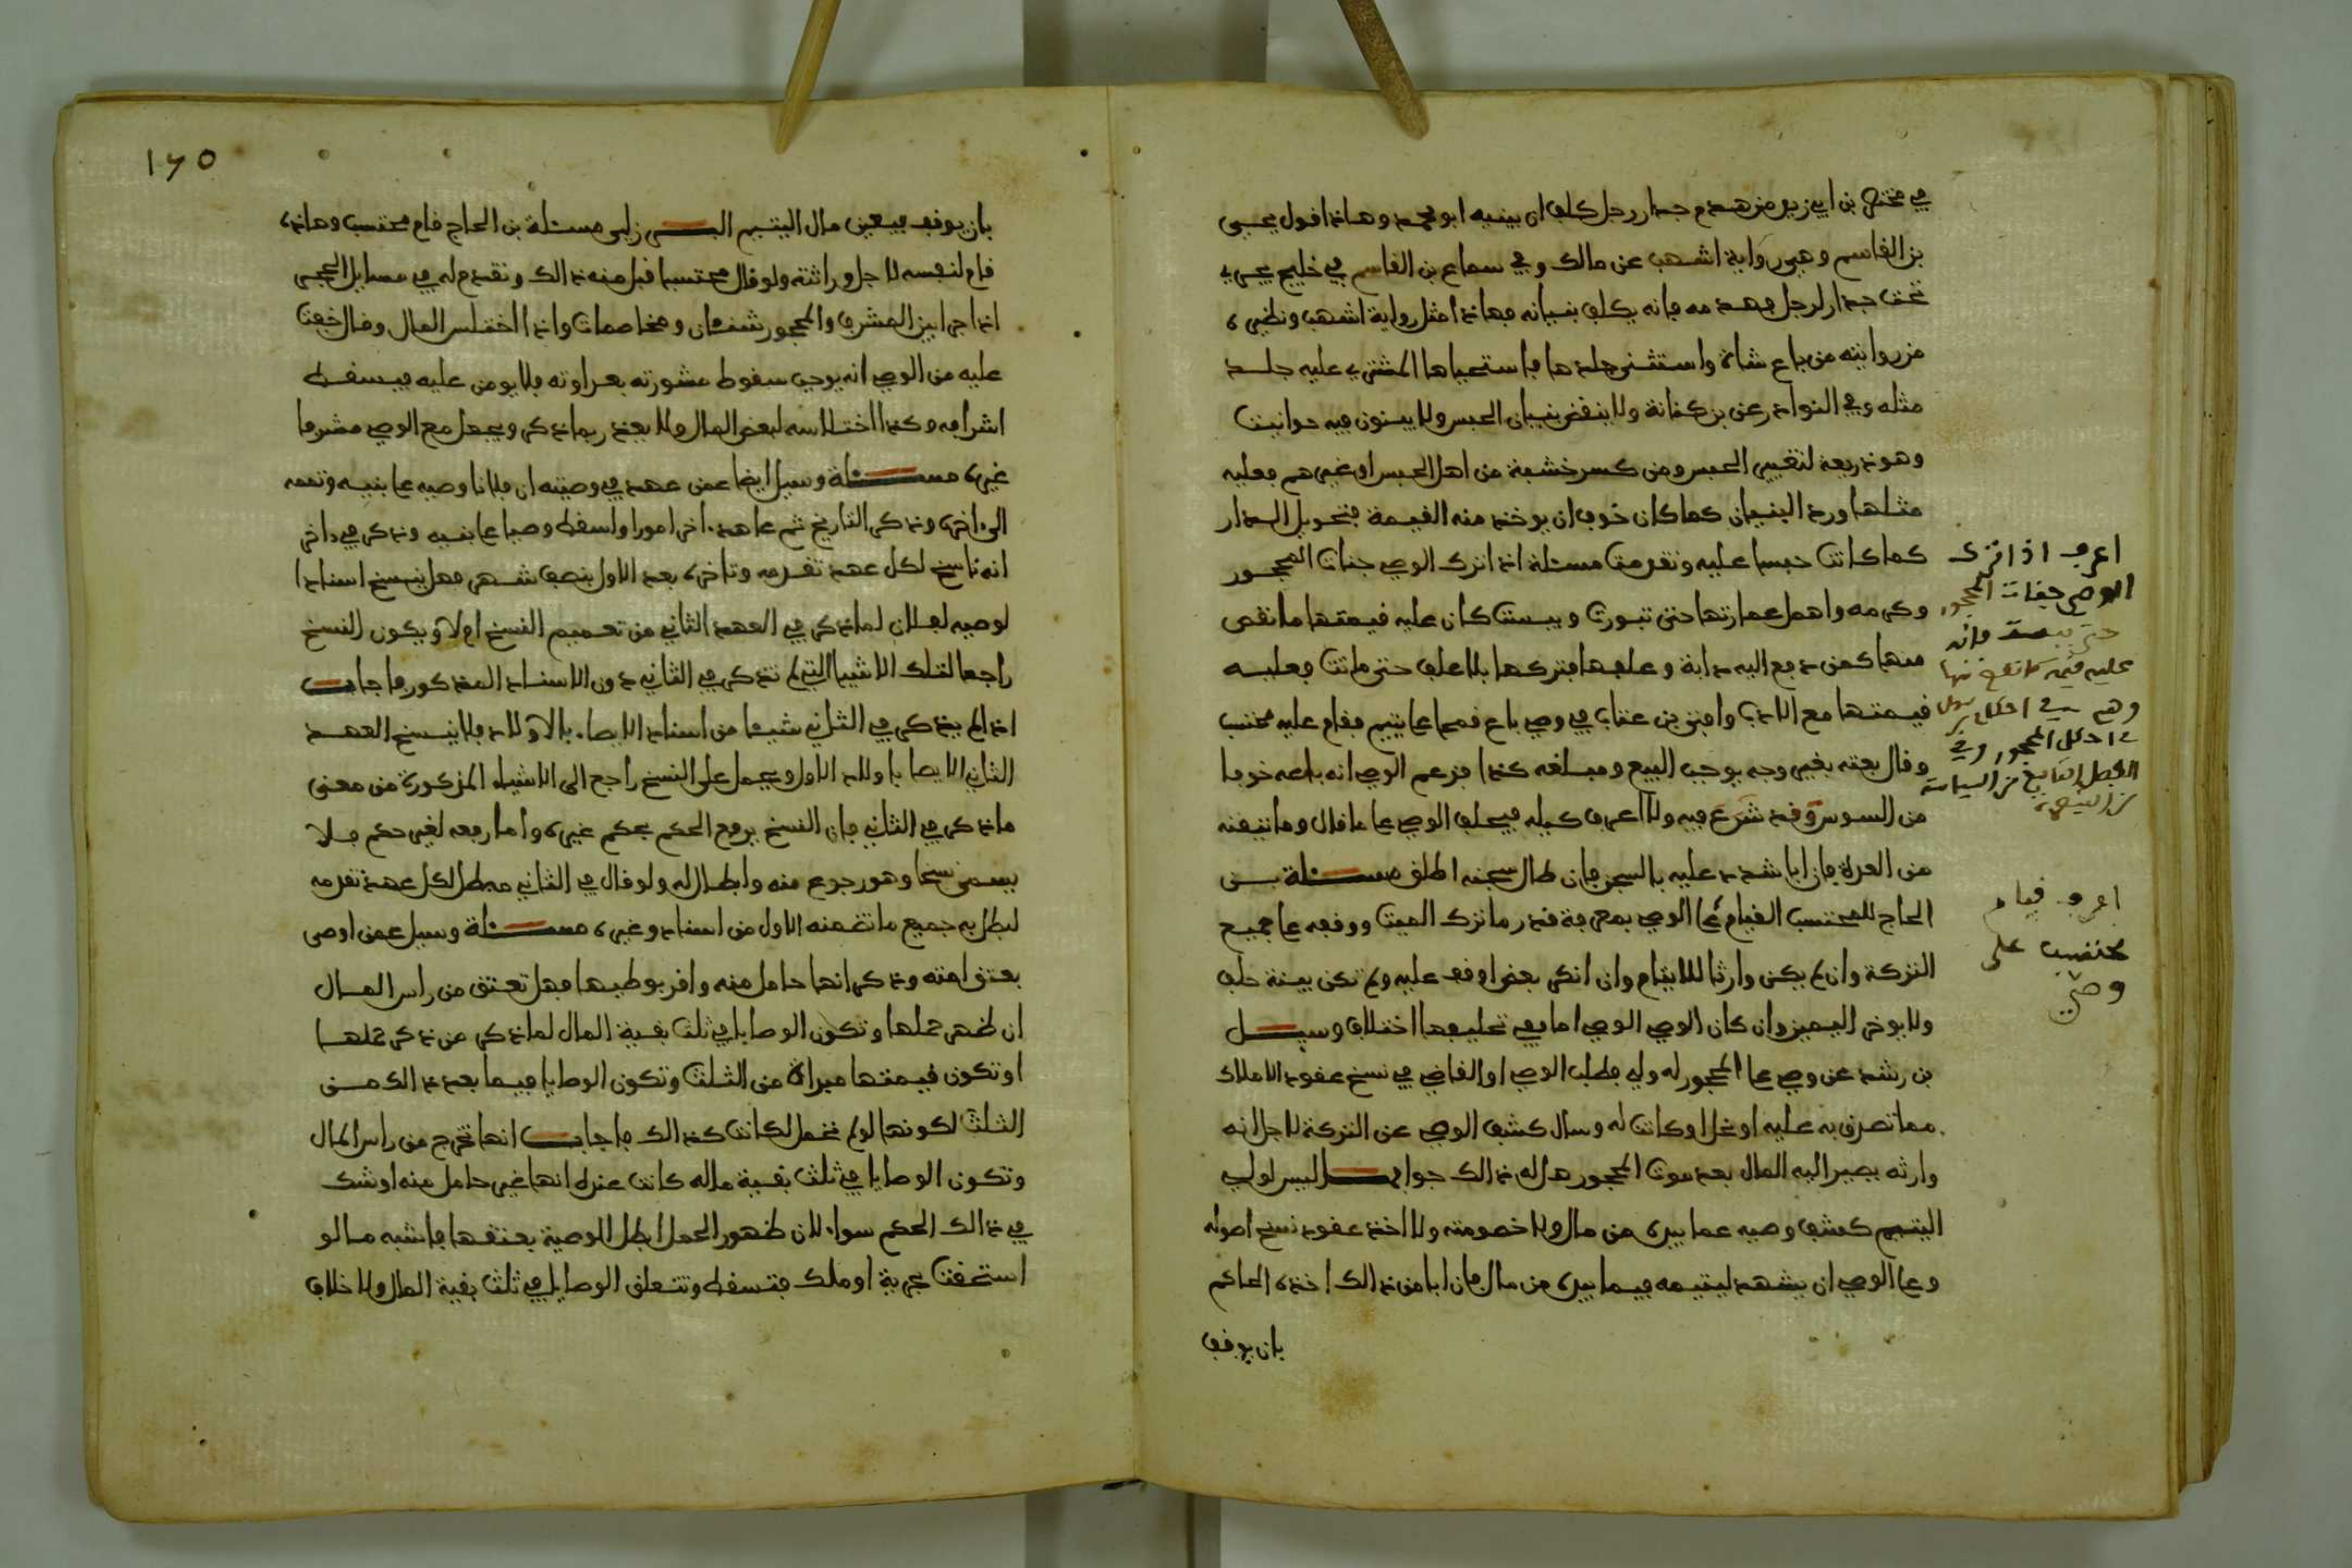 في مختصر بن ابي زيد من هدم جدار رجل كلف ان يبنيه ابو محمد وهاذا قول يحيى
بن القاسم وهي رواية اشهب عن مالك وفي سماع بن القاسم في خليج يجري
تحت جدار لرجل فهدمه فانه يكلف بنيانه فهاذا مثل رواية اشهب ونظيره
من روايته من باع شاة واستثنى جلدها فاستحياها المشتري عليه جلد
مثله وفي النوادر عن بن كنانة ولا ينقض بنيان الحبس ولا يبنون فيه حوانيت
وهو ذريعة لتغيير الحبس ومن كسر خشبة من اهل الحبس او غيرهم فعليه
مثلها ورد البنيان كما كان خوف ان يوخذ منه القيمة فتحويل الدار
كما كانت حبسا عليه وتقدمت مسئلة اذا ترك الوصي جنات المحجور
وكرمه واهمل عمارتها حتى تبورت ويبست كان عليه قيمتها ما نقص
منها كمن دفع اليه دابة وعلفها فتركها بلا علف حتى ماتت فعليه
قيمتها مع الادب وافتى بن عتاب في وصي باع قمحا على يتيم فقام عليه محتسب
وقال بعته بغير وجه يوجب البيع ومبلغه كذا فزعم الوصي انه باعه خوفا
من السوس وقد شرع فيه ولا اعرف كيله فيحلف الوصي على ما قال وما تيقنه
من العدة فان ابا شدد عليه بالسجن فان طال سجنه اطلق مسئلة بن
الحاج للمحتسب القيام على الوصي بمعرفة قدر ما ترك الميت ووقفه على جميع
التركة وان لم يكن وارثا للايتام وان انكر بعض اوقف عليه ولم تكن بينة حلف
ولا يوخر اليمين وان كان الوصي الوصي اما بقي تحليفها اختلاف وسيل
بن رشد عن وصي على المحجور له ولي فطلب الوصي او القاضي في نسخ عقود الاملاك
مما تصرف به عليه او نحل او كانت له وسال كشف الوصي عن التركة لاجل انه
وارثه يصير اليه المال بعد موت المحجور هل له ذالك جوابه ليس لولي
اليتيم كشف وصيه عما بيده من مال ولا خصومته ولا اخذ عقود نسخ اصوله
وعلى الوصي ان يشهد ليتيمه فيما بيده من مال فان ابا من ذالك اخذه الحاكم
بان يوقف
اعرف اذا ترك
الوصي جنات المحجور
حتى يبست فانه
عليه قيمة ما نقص منها
اعرف قيام
محتسب على
وصي
١٦٥
بان يوقف بيعن مال اليتيم مسئلة بن الحاج قام محتسب وهاذه
قام لنفسه لاجل وراثته ولو قال محتسبا قبل منه ذالك وتقدم له في مسايل الحجر
اذا جرا بين المشرف والمحجور شنئان ومخاصمات واذا اختلس المال وقال خفت
عليه من الوصي انه يوجب سقوط مشورته بعداوته فلا يومن عليه فيسقط
اشرافه وكذا اختلاسه لبعض المال ولا يعذر بما ذكر ويجعل مع الوصي مشرفا
غيره مسئلة وسيل ايضا عمن عهد في وصيته ان فلانا وصيه على بنيه وتممه
الى اخره وذكر التاريخ ثم عاهد اخر امورا واسقط وصيا على بنيه وذكر في اخر
انه ناسخ لكل عهد تقدمه وتاخره بعد الاول بنصف شهر فهل ينسخ اسنادا
لوصيه لفلان لما ذكر في العهد الثاني من تعميم النسخ ام لا ويكون النسخ
راجعا لتلك الاشيا التي لم تذكر في الثاني دون الاسناد المذكور فاجاب
اذا لم يذكر في الثاني شيئا من اسناد الايصا بالاولاد فلا ينسخ العهد
الثاني الايصا باولاد الاول ويحمل على النسخ راجع الى الاشياء المذكورة من معنى
ما ذكر في الثاني فان النسخ يرفع الحكم بحكم غيره واما رفعه لغير حكم فلا
يسمى نسخا وهو رجوع منه وابطال له ولو قال في الثاني مبطل لكل عهد تقدمه
لبطل به جميع ما تضمنه الاول من اسناد وغيره مسئلة وسيل عمن اوصى
بعتق امته وذكر انها حامل منه واقر بوطيها فهل تعتق من راس المال
ان ظهر حملها وتكون الوصايا في ثلث بقية المال لما ذكر من ذكر حملها
او تكون قيمتها مبداة من الثلث وتكون الوصايا فيما بعد ذالك من
الثلث لكونها لو لم تحمل لكانت كذالك فاجاب انها تخرج من راس المال
وتكون الوصايا في ثلث بقية ماله كانت عنده انها غير حامل منه او شك
في ذالك الحكم سواء لان ظهور الحمل ابطل الوصية بعتقها فاشبه ما لو
استحقت بحرية او ملك فتسقط وتتعلق الوصايا في ثلث بقية المال ولا خلاف